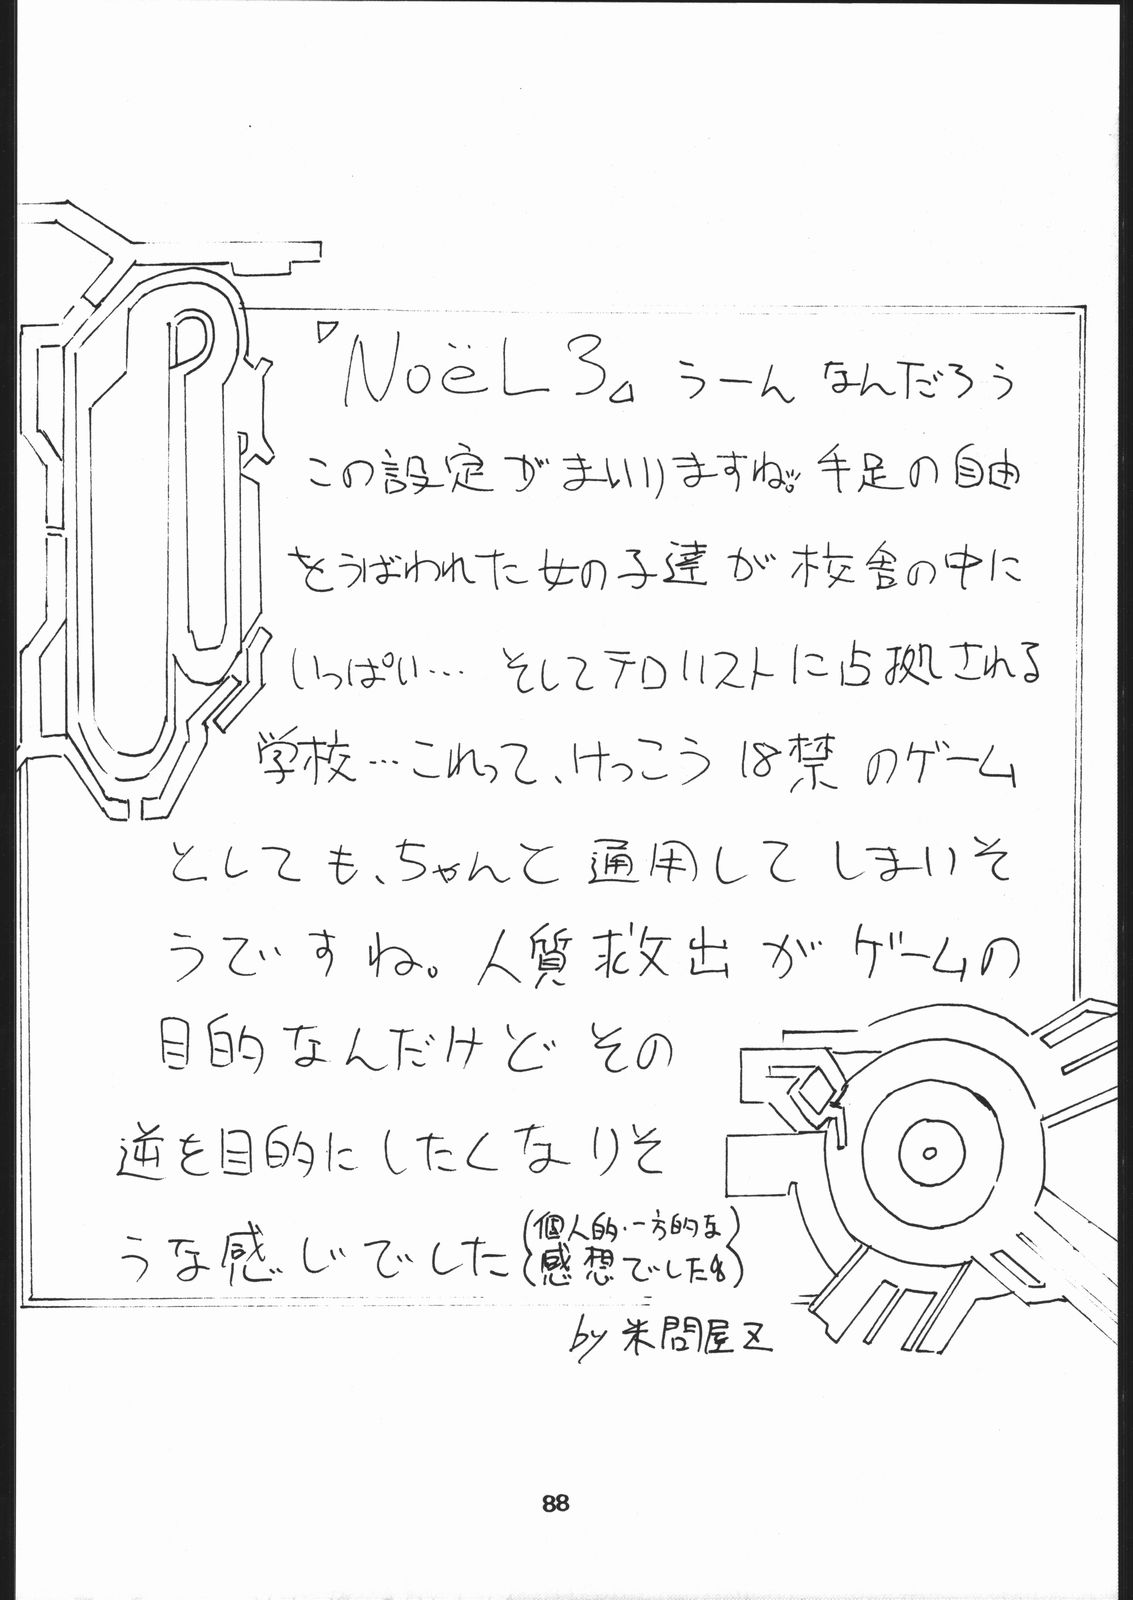 『NoëL 3』 うーん なんだろう
この設定がまいりますね。手足の自由
をうばわれた女の子達が校舎の中に
いっぱい… そしてテロリストに占拠される
学校…これって、けっこう 18禁のゲーム
としても、ちゃんと通用してしまいそ
うですね。人質救出がゲームの
目的なんだけど その
逆を目的にしたくなりそ
うな感じでした
(個人的・一方的な
感想でした)
by 米問屋Z
88